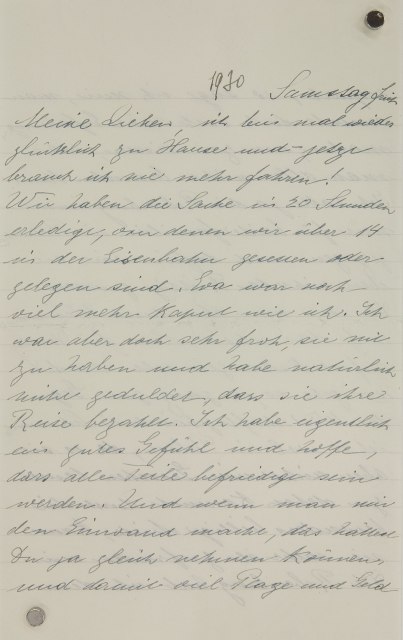 1930 Samstag früh
Meine Lieben, ich bin mal wieder
glücklich zu Hause und - jetzt
brauch ich nie mehr fahren!
Wir haben die Sache in 20 Stunden
erledigt, von denen wir über 14
in der Eisenbahn gesessen oder
gelegen sind. Eva war noch
viel mehr kaput wie ich. Ich
war aber doch sehr froh, sie mit
zu haben und habe natürlich
nicht geduldet, dass sie ihre
Reise bezahlt. Ich habe eigentlich
ein gutes Gefühl und hoffe,
dass alle Teile befriedigt sein
werden. Und wenn man mir
den Einwand macht, das hättest
Du ja gleich nehmen können,
und damit viel Plage und Geld